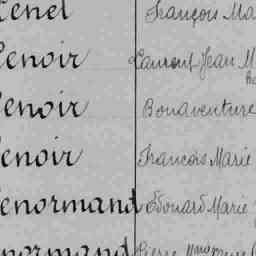 Lenel François Ma
Lenoir Laurent Jean M
Lenoir Bonaventure
Lenoir François Marie
Lenormand Édouard Marie
Lenormand Pierre